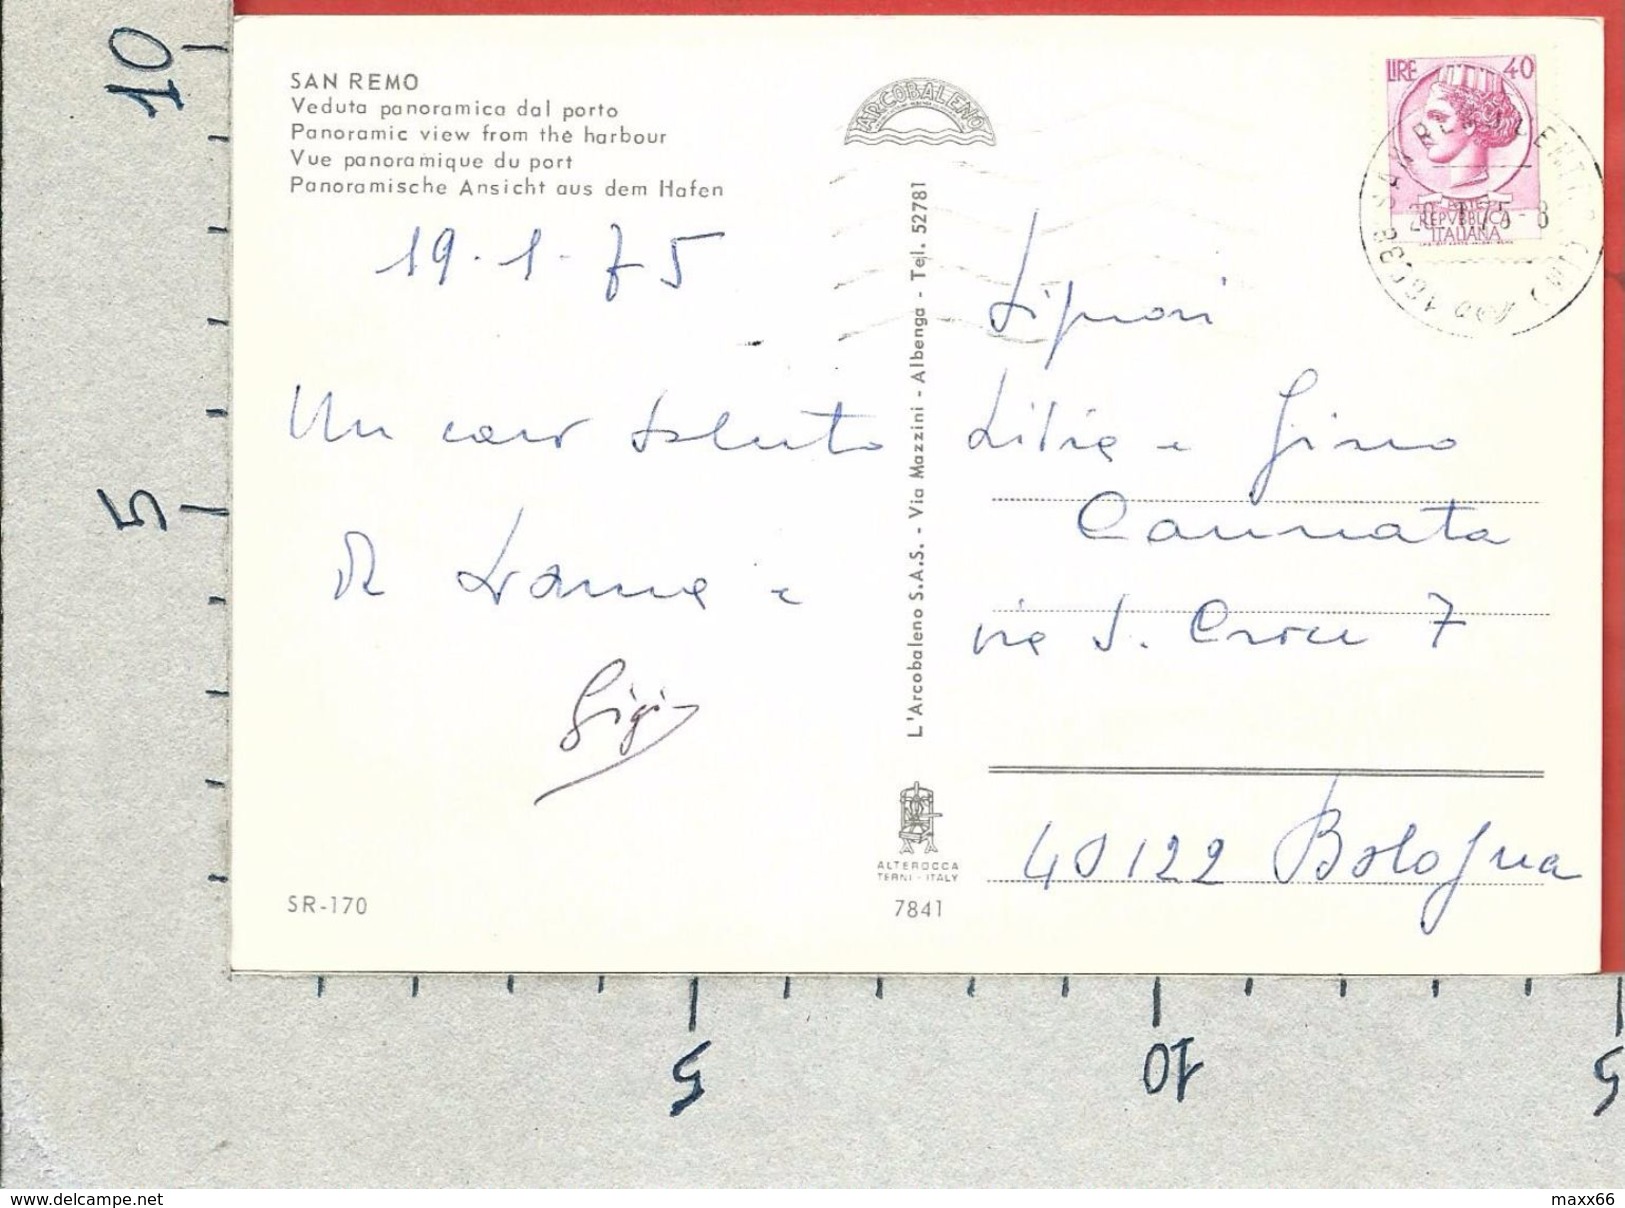 SAN REMO
Veduta panoramica dal porto
Panoramic view from the harbour
Vue panoramique du port
Panoramische Ansicht aus dem Hafen
19.1.75
Un caro saluto
da Ivanna e
Gigi
SR-170
ARCOBALENO
L'Arcobaleno S.A.S. - Via Mazzini - Albenga - Tel. 52781
ALTEROCCA
TERNI - ITALY
7841
LIRE 40
POSTE
REPVBBLICA
ITALIANA
20.1.75-8
Signori
Lilia e Gino
Cannata
via S. Croce 7
40122 Bologna
10
5
5
10
5
www.delcampe.net
maxx66